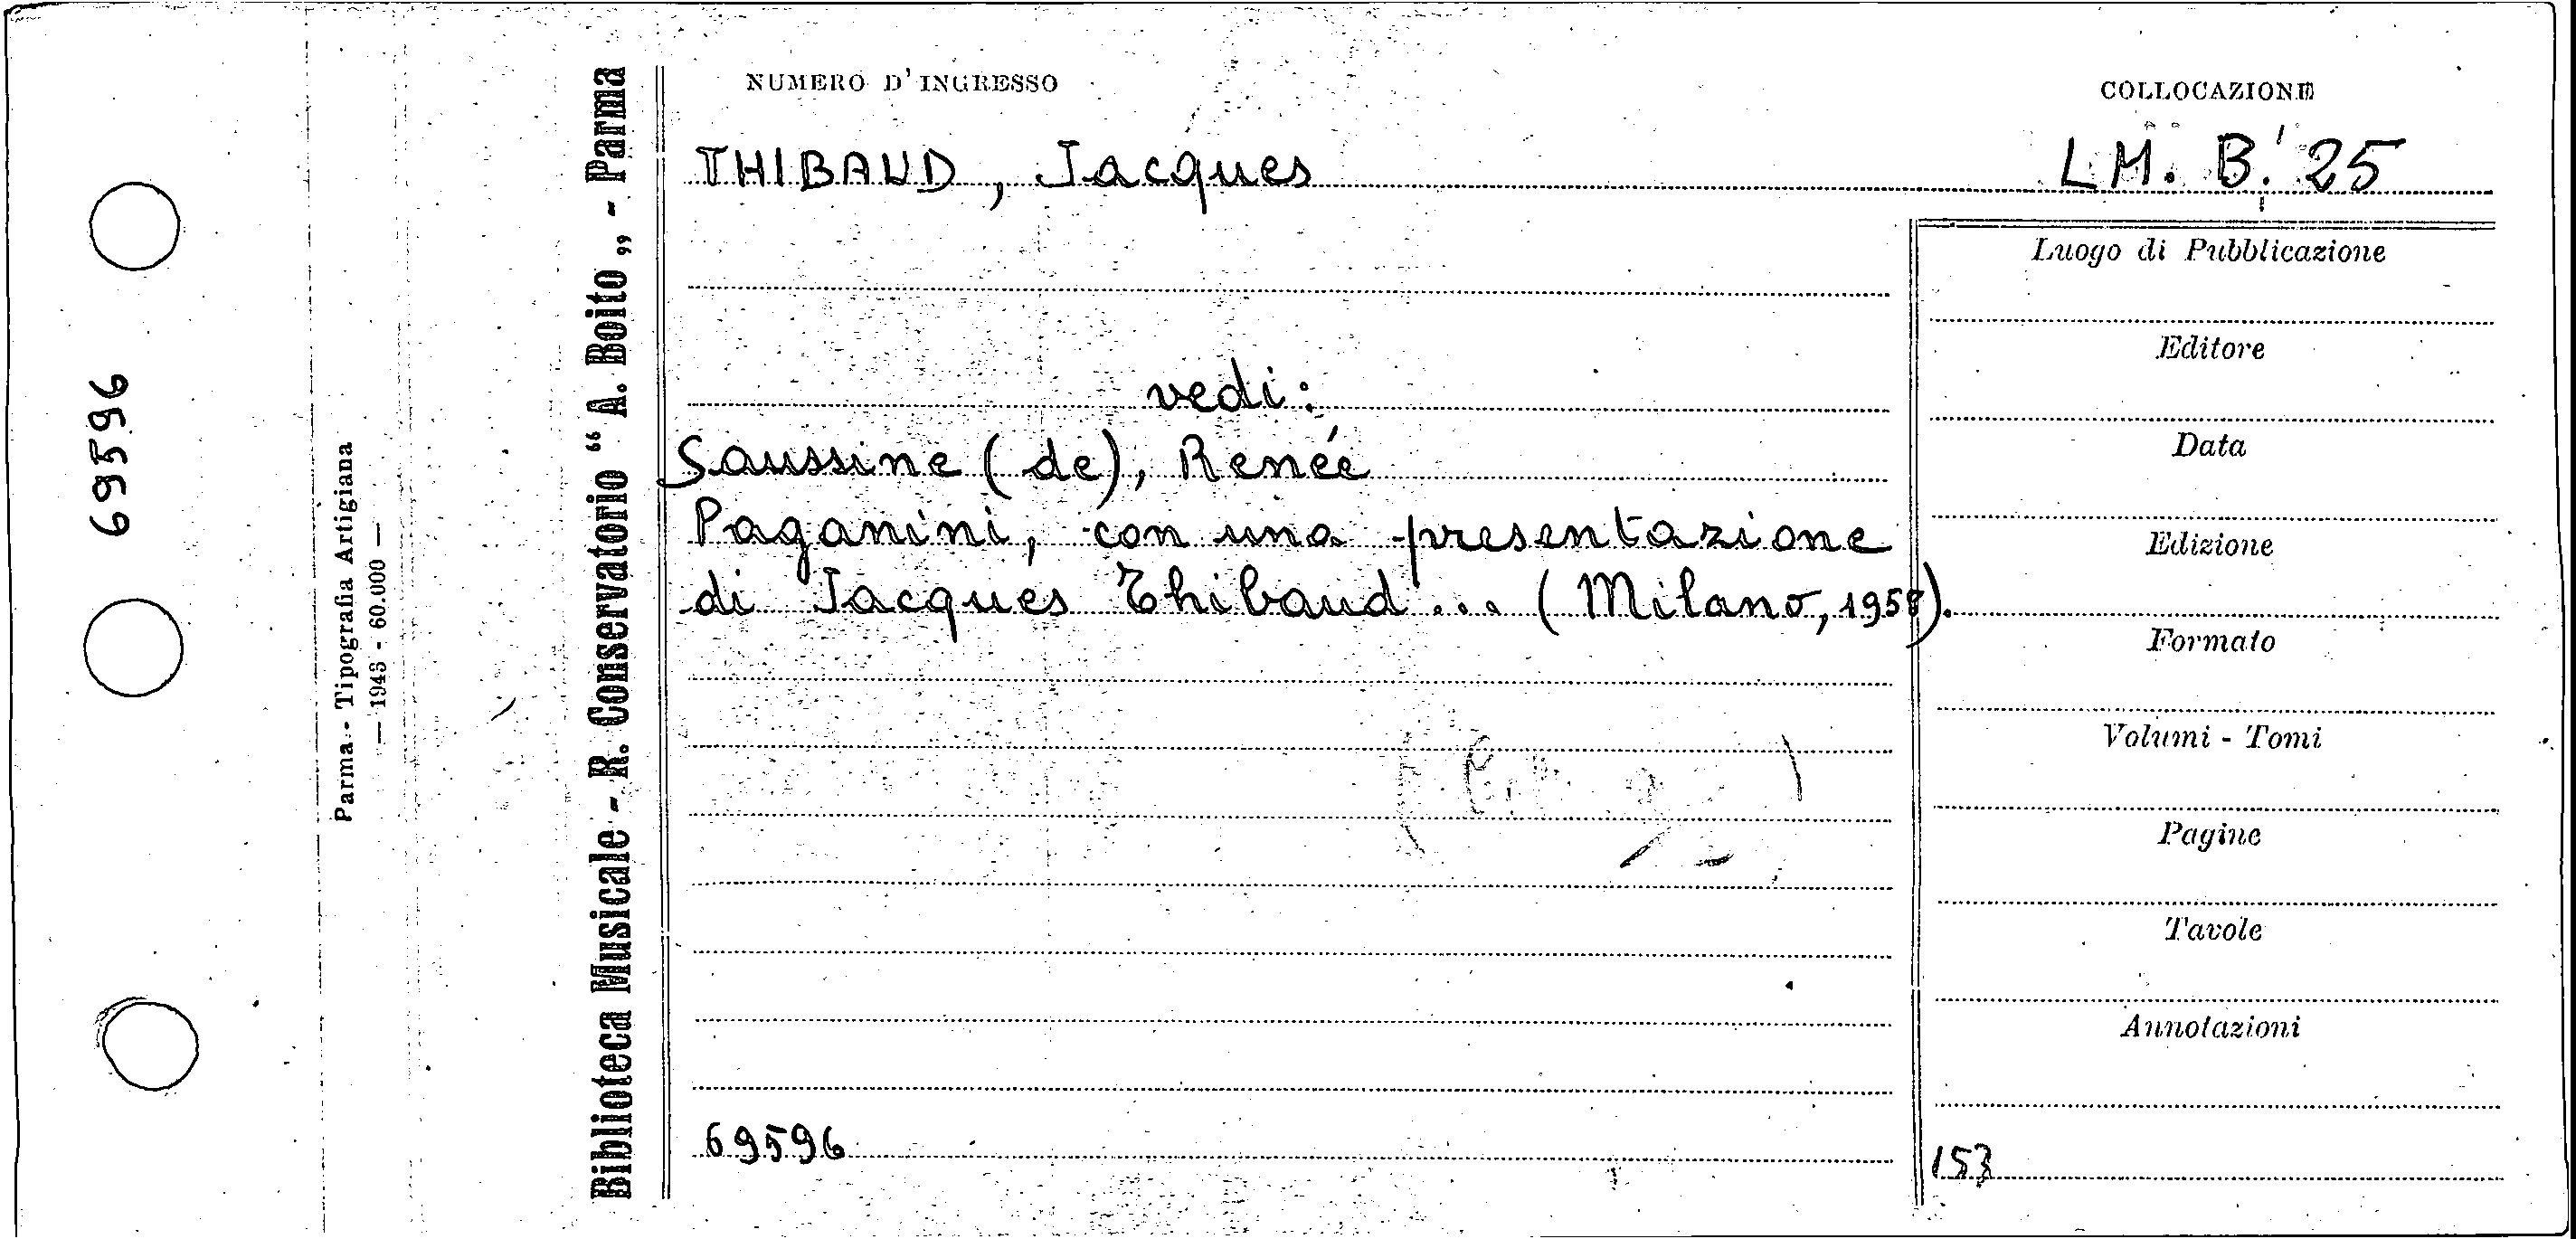 NUMERO D'INGRESSO
COLLOCAZIONE
THIBAUD, Jacques
LM. B. 25
vedi:
Saussine (de), Renée
Paganini, con una presentazione
di Jacques Thibaud... (Milano, 1958).
69596
Luogo di Pubblicazione
Editore
Data
Edizione
Formato
Volumi - Tomi
Pagine
Tavole
Annotazioni
153
Biblioteca Musicale - R. Conservatorio “A. Boito„ - Parma
Parma - Tipografia Artigiana
— 1943 - 60.000 —
69596